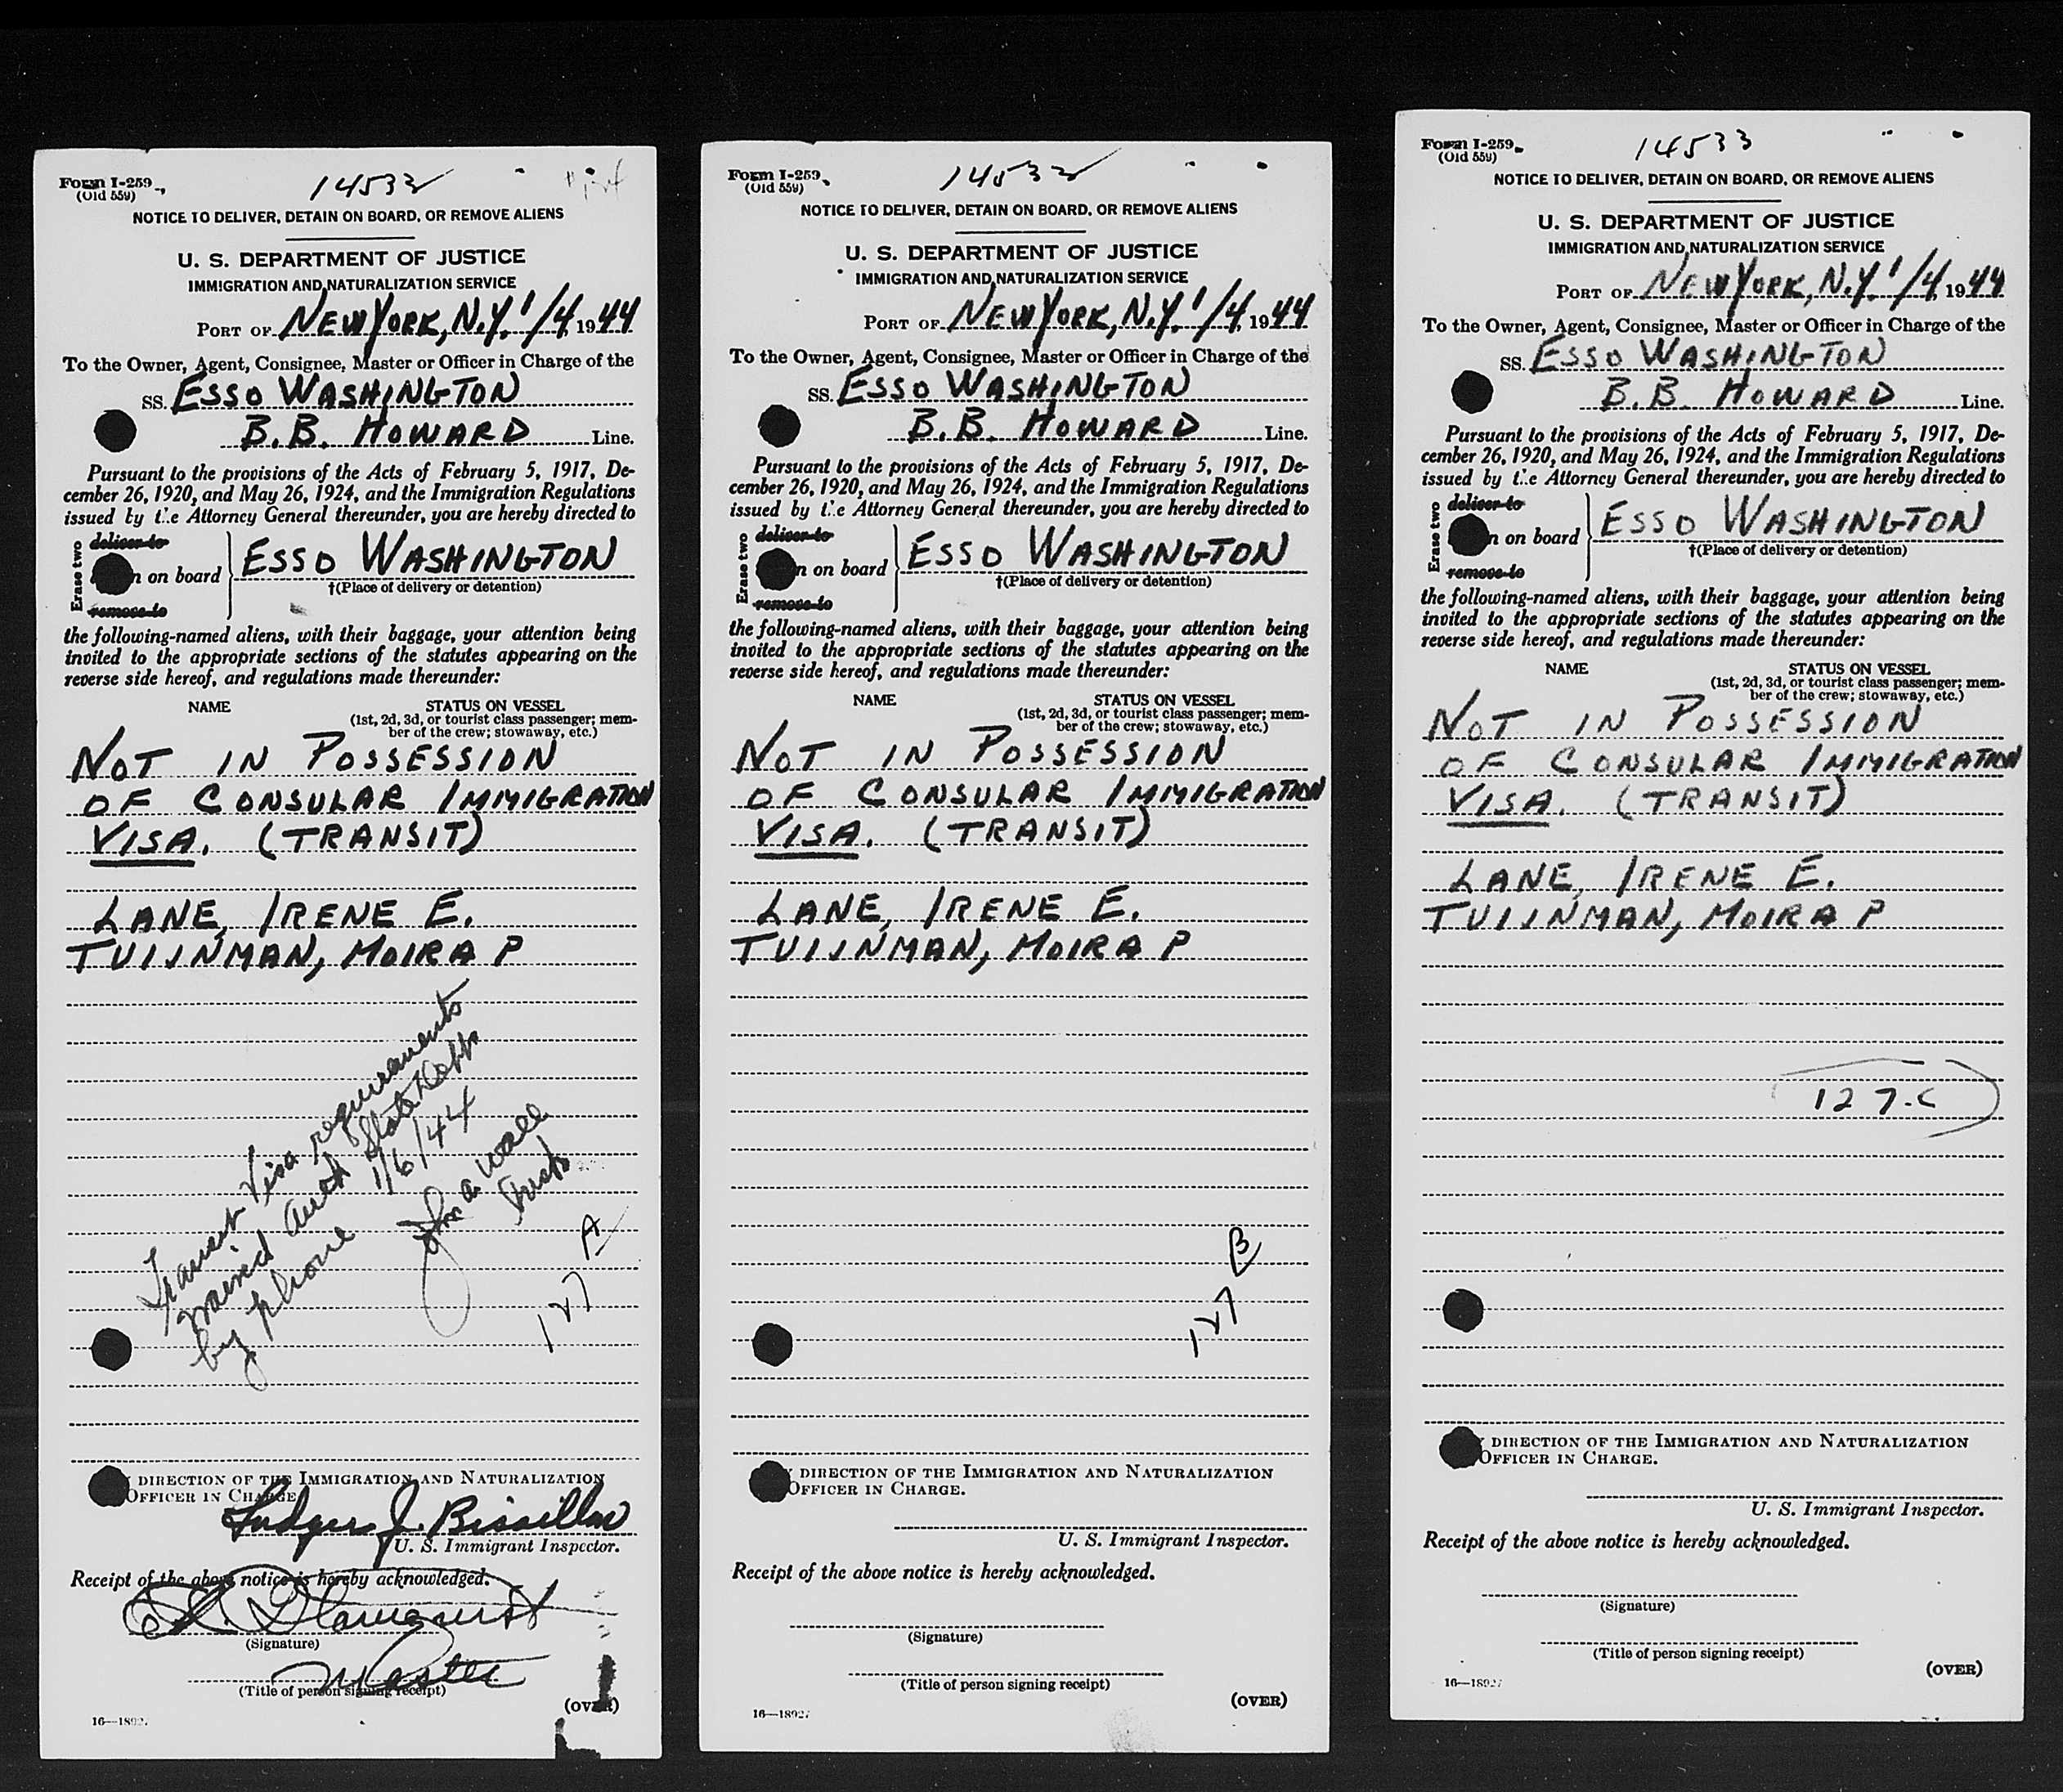 Form I-259
(Old 559)
14533
NOTICE TO DELIVER, DETAIN ON BOARD, OR REMOVE ALIENS
U. S. DEPARTMENT OF JUSTICE
IMMIGRATION AND NATURALIZATION SERVICE
PORT OF NEW YORK, N.Y. 1/4, 1944
To the Owner, Agent, Consignee, Master or Officer in Charge of the
SS. ESSO WASHINGTON
B.B. HOWARD Line.
Pursuant to the provisions of the Acts of February 5, 1917, De-
cember 26, 1920, and May 26, 1924, and the Immigration Regulations
issued by the Attorney General thereunder, you are hereby directed to
Erase two
deliver to
n on board
remove to
ESSO WASHINGTON
†(Place of delivery or detention)
the following-named aliens, with their baggage, your attention being
invited to the appropriate sections of the statutes appearing on the
reverse side hereof, and regulations made thereunder:
NAME STATUS ON VESSEL
(1st, 2d, 3d, or tourist class passenger; mem-
ber of the crew; stowaway, etc.)
NOT IN POSSESSION
OF CONSULAR IMMIGRATION
VISA. (TRANSIT)
LANE, IRENE E.
TUIJNMAN, MOIRA P
Transit Visa requirements
waived auth State Dept
by phone 1/6/44
John A Wall
Insp
127 A
DIRECTION OF THE IMMIGRATION AND NATURALIZATION
OFFICER IN CHARGE
Ludger J.
U. S. Immigrant Inspector.
Receipt of the above notice is hereby acknowledged.
(Signature)
Master
(Title of person signing receipt)
(OVER)
16—18927
Form I-259
(Old 559)
14533
NOTICE TO DELIVER, DETAIN ON BOARD, OR REMOVE ALIENS
U. S. DEPARTMENT OF JUSTICE
IMMIGRATION AND NATURALIZATION SERVICE
PORT OF NEW YORK, N.Y. 1/4, 1944
To the Owner, Agent, Consignee, Master or Officer in Charge of the
SS. ESSO WASHINGTON
B.B. HOWARD Line.
Pursuant to the provisions of the Acts of February 5, 1917, De-
cember 26, 1920, and May 26, 1924, and the Immigration Regulations
issued by the Attorney General thereunder, you are hereby directed to
Erase two
deliver to
n on board
remove to
ESSO WASHINGTON
†(Place of delivery or detention)
the following-named aliens, with their baggage, your attention being
invited to the appropriate sections of the statutes appearing on the
reverse side hereof, and regulations made thereunder:
NAME STATUS ON VESSEL
(1st, 2d, 3d, or tourist class passenger; mem-
ber of the crew; stowaway, etc.)
NOT IN POSSESSION
OF CONSULAR IMMIGRATION
VISA. (TRANSIT)
LANE, IRENE E.
TUIJNMAN, MOIRA P
127 B
DIRECTION OF THE IMMIGRATION AND NATURALIZATION
OFFICER IN CHARGE.
U. S. Immigrant Inspector.
Receipt of the above notice is hereby acknowledged.
(Signature)
(Title of person signing receipt)
(OVER)
16—18927
Form I-259
(Old 559)
14533
NOTICE TO DELIVER, DETAIN ON BOARD, OR REMOVE ALIENS
U. S. DEPARTMENT OF JUSTICE
IMMIGRATION AND NATURALIZATION SERVICE
PORT OF NEW YORK, N.Y. 1/4, 1944
To the Owner, Agent, Consignee, Master or Officer in Charge of the
SS. ESSO WASHINGTON
B.B. HOWARD Line.
Pursuant to the provisions of the Acts of February 5, 1917, De-
cember 26, 1920, and May 26, 1924, and the Immigration Regulations
issued by the Attorney General thereunder, you are hereby directed to
Erase two
deliver to
n on board
remove to
ESSO WASHINGTON
†(Place of delivery or detention)
the following-named aliens, with their baggage, your attention being
invited to the appropriate sections of the statutes appearing on the
reverse side hereof, and regulations made thereunder:
NAME STATUS ON VESSEL
(1st, 2d, 3d, or tourist class passenger; mem-
ber of the crew; stowaway, etc.)
NOT IN POSSESSION
OF CONSULAR IMMIGRATION
VISA. (TRANSIT)
LANE, IRENE E.
TUIJNMAN, MOIRA P
127-C
DIRECTION OF THE IMMIGRATION AND NATURALIZATION
OFFICER IN CHARGE.
U. S. Immigrant Inspector.
Receipt of the above notice is hereby acknowledged.
(Signature)
(Title of person signing receipt)
(OVER)
16—18927